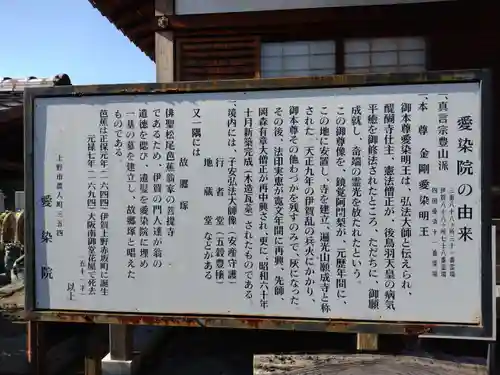 愛染院の由来
三重八十八ヵ所三十一番霊場
伊賀八十八ヵ所七十八番霊場
一、真言宗豊山派
一、本尊 金剛愛染明王
御本尊愛染明王は、弘法大師と伝えられ、
醍醐寺住主、憲法僧正が、後鳥羽天皇の病気
平癒を御修法されたところ、ただちに 御願
成就し、奇端の霊光を放たれたという。
この御尊像を、鏡愛阿闍梨が、元暦年間に
この地に安置し、寺を建立、遍光山願成寺と称
された。天正九年の伊賀乱の兵火にかかり、
御本尊その他わづかを残すのみで、灰になった。
その後、法印実恵が寛文年間に再興、先師
岡森有章大僧正が再中興され、更に、昭和六十年
十月新築完成(木造瓦葺)されたものである。
一、境内には、子安弘法大師像(安産守護)
行者堂(五穀豊穣)
地蔵堂 などがある
又一隅には
故郷塚
俳聖松尾芭蕉翁家の菩提寺
であるため、伊賀の門人達が翁の
道徳を偲び、遺髪を愛染院に埋め
一基の墓を建立し、故郷塚と唱えた
ものである。
芭蕉は正保元年(一六四四)伊賀上野赤坂町に誕生
元禄七年(一六九四)大阪南御堂花屋で死去
五十一才
以上
上野市農人町三五四
愛染院